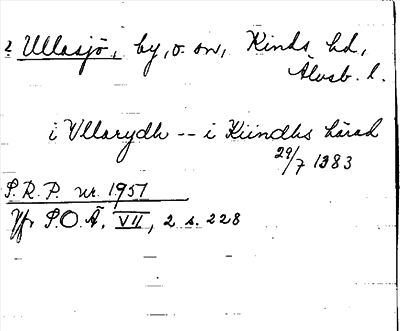 ? Ullasjö, by, o. sn, Kinds hd,
Älvsb. l.
i Vllarydh -- i Kiindhs härad
29/7 1383
S.R.P. nr. 1951
Jfr S.O.Ä. VII, 2 s. 228